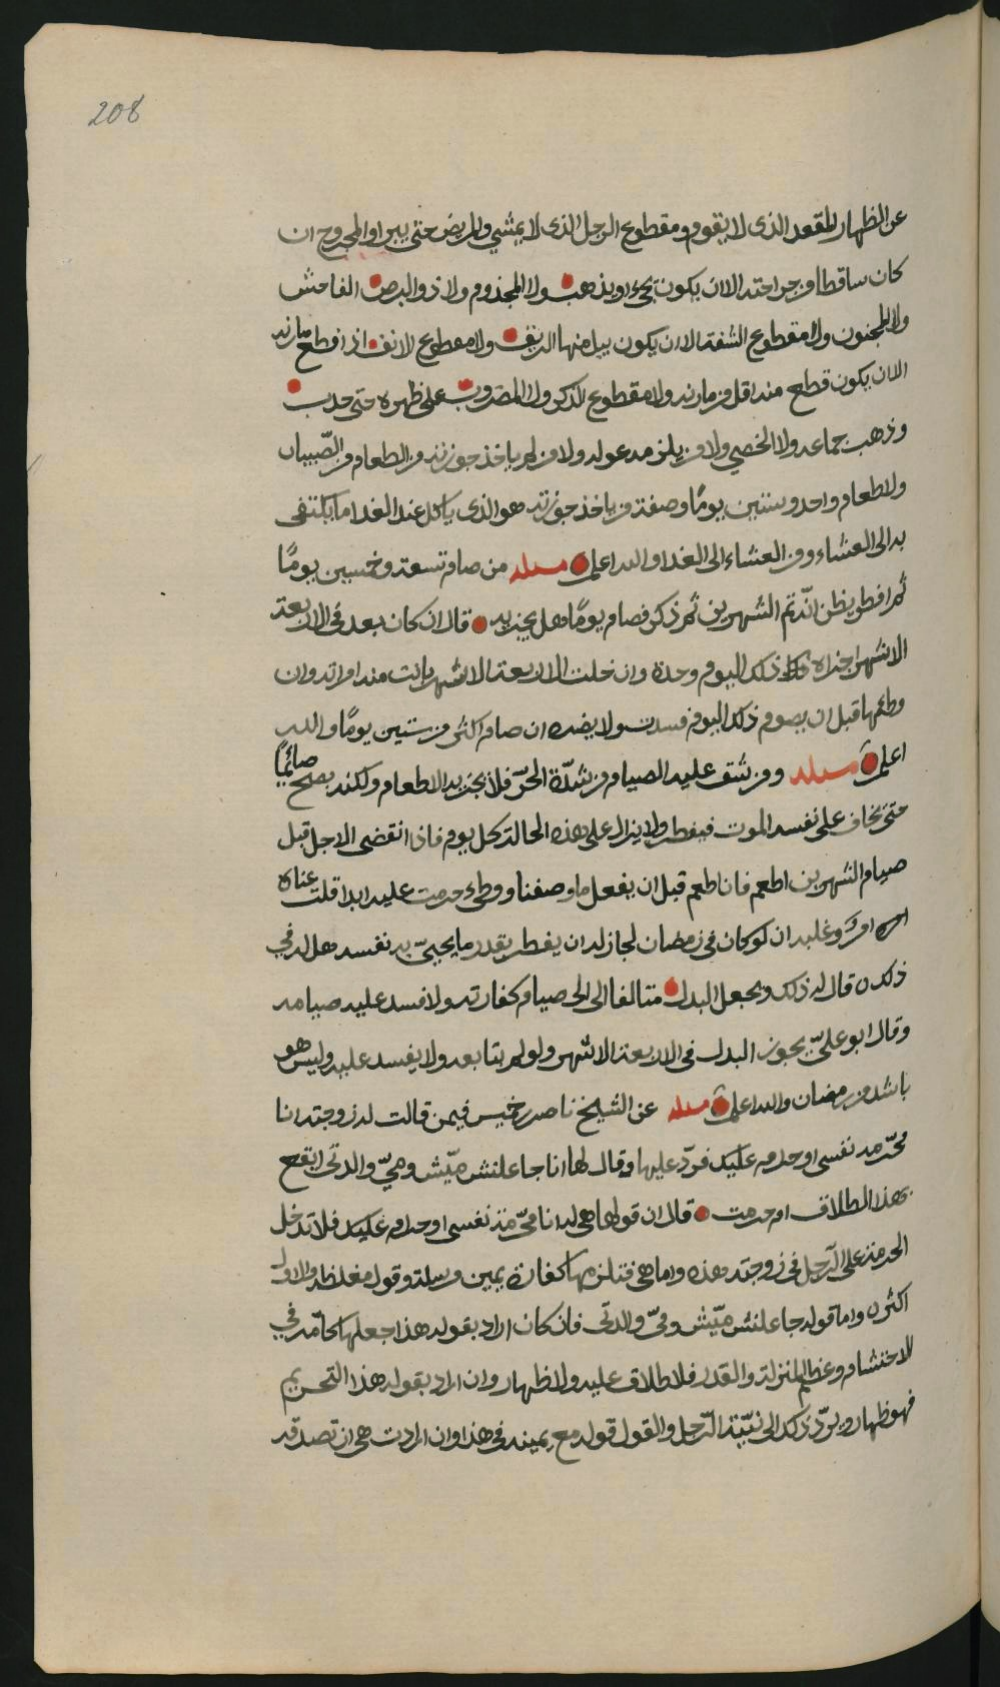 208
عن الظهار المقعد الذى لا يقوم ومقطوع الرجل الذى لا يمشي والمريض حتى يبرا والمجروح ان
كان ساقطا او جراحته الا ان يكون يجىء ويذهب ولا المجذوم ولا ذو البرص الفاحش
ولا المجنون ولا مقطوع الشفة الا ان يكون يبل منها الريق ولا مقطوع الانف اذا قطع مارنه
الا ان يكون قطع منه اقل من مارنه ولا مقطوع الذكر ولا المضروب على ظهره حتى حدب
وذهب جماعه ولا الخصي ولا من يلزمه عوله ولا من لم ياخذ حوزته من الطعام من الصّبيان
ولا طعام واحد وستين يومًا وصفة من ياخذ حوزته هو الذى ياكل عند الغدا ما يكتفى
به الى العشاء ومن العشاء الى الغدا والله اعلم مسله من صام تسعة وخمسين يومًا
ثم افطر يظن انّه تم الشهرين ثم ذكر فصام يومًا هل يجزيه قال ان كان بعد فى الاربعة
الاشهر اجزاه ذلك اليوم وحده وان خلت الاربعة الاشهر بانت منه امراته وان
وطئها قبل ان يصوم ذلك اليوم فسدت ولا يضره ان صام اكثر من ستين يومًا والله
اعلم مسله ومن شق عليه الصيام من شدّة الحرّ فلا يجزيه الاطعام ولكنه يصبح صائمًا
حتى يخاف على نفسه الموت فيفطر ولا يزال على هذه الحالة كل يوم فاذا انقضى الاجل قبل
صيام الشهرين اطعم فان اطعم قبل ان يفعل ما وصفنا ووطىء حرمت عليه ابدا قلت عناه
امر وغلبه ان لو كان فى رمضان لجاز له ان يفطر بقدر ما يحيىّ به نفسه هل له في
ذلك قال له ذلك ويجعل البدل متالفا الى صيام كفارته ولا فسد عليه صيامه
وقال ابو علىّ يجوز البدل فى الاربعة الاشهر ولو لم يتابعه ولا يفسد عليه وليس هو
باشد من رمضان والله اعلم مسله عن الشيخ ناصر بن خميس فيمن قالت له زوجته انا
محرّمه نفسى او حرام عليك فردّ عليها وقال لها انا جاعلنش ميّش وميّ والدتى ايقع
بهذا الطلاق ام حرمت قال ان قولها هى له انا محرّمة نفسى او حرام عليك فلا تدخل
الحرمة على الرّجل في زوجته هذه واما هى فتلزمها كفارة يمين مرسلة وقول مغلظة والاول
اكثر واما قوله جاعلنش ميّش وميّ والدتى فان كان اراد بقوله هذا اجعلها كامّه في
الاحتشام وعظم المنزلة والقدر فلا طلاق عليه ولا ظهار وان اراد بقوله هذا التحريم
فهو ظهار ويردّ ذلك الى نيّة الرّجل والقول قوله مع يمينه فى هذا وان ارادت هى ان تصدقه